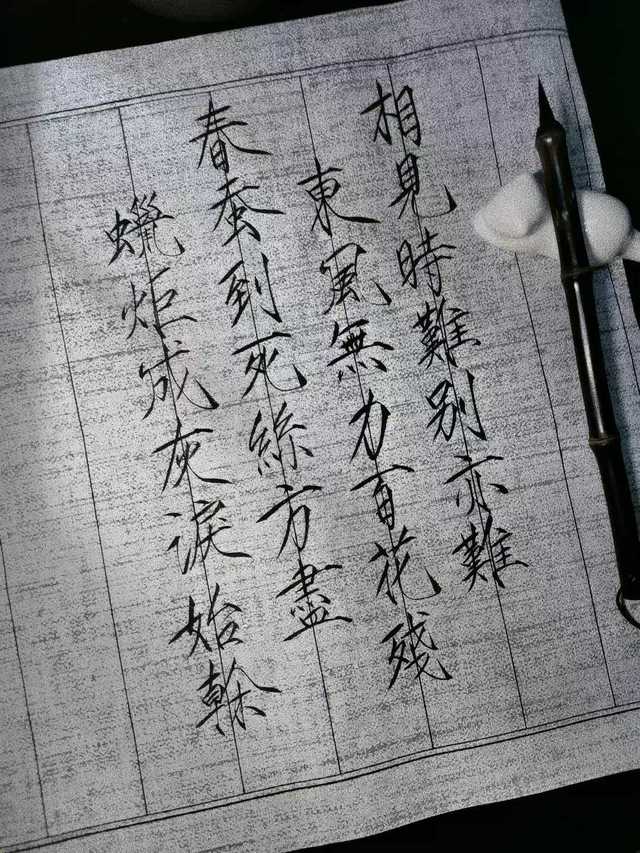 相見時難別亦難
東風無力百花殘
春蚕到死絲方盡
蠟炬成灰淚始榦